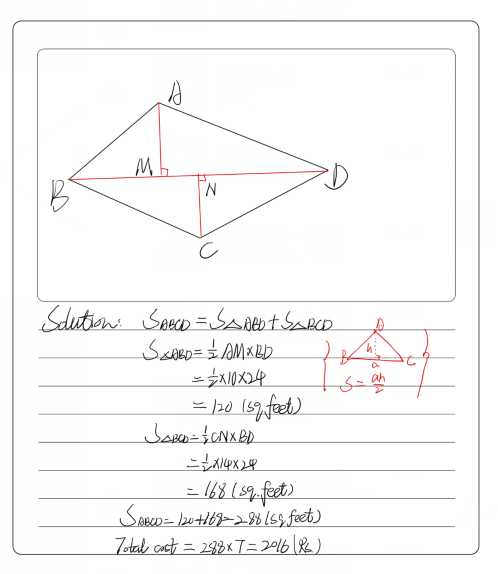 A
M
B
N
D
C
Solution: SABCD = S△ABD + S△BCD
S△ABD = 1/2 AM×BD
= 1/2×10×24
= 120 (sq.feet)
A
h
B
a
C
S = ah/2
S△BCD = 1/2 CN×BD
= 1/2×14×24
= 168 (sq.feet)
SABCD = 120+168=288 (sq.feet)
Total cost = 288×7=2016 (Rs)